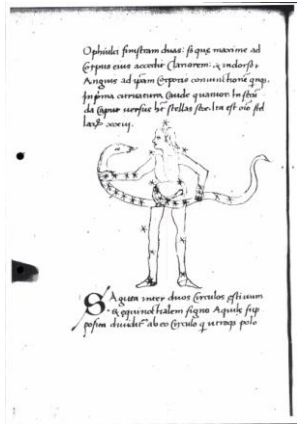 Ophiulci sinistram duas: siquę maxime ad
Corpus eius accedit Clariorem: & in dorso
Anguis ad ipsam Corporis coniunctionē
In prima curvatura Caudę quatuor. In
da Caput versus hꝫ stellas sex. Ita est oīo
xxiij.
Sagitta inter duos Circulos estivum
& equinoctialem signo Aquilę sup
posita dividit ab eo Circulo q utrosqꝫ polo